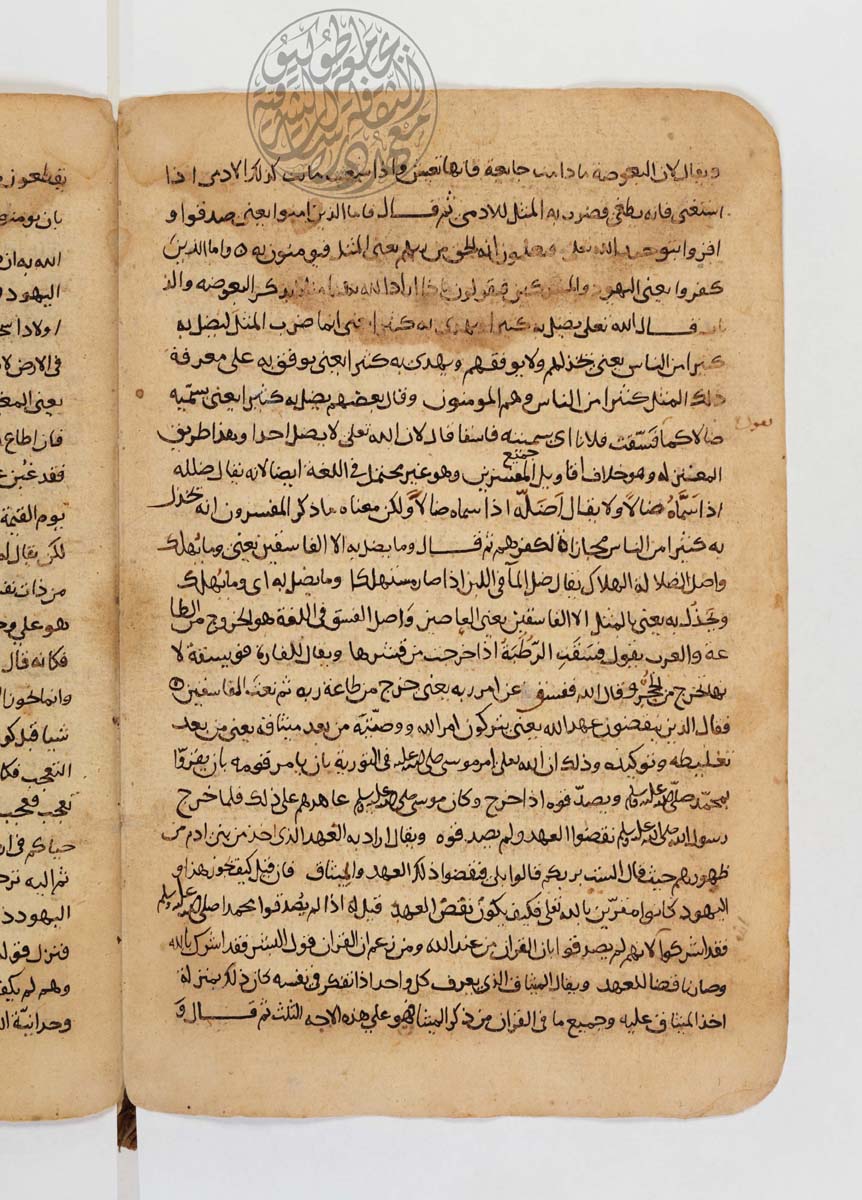 ويقال لان البعوضة ما دامت جايعة فانها تعيش واذا شبعت ماتت كذلك الادمى اذا
استغنى فانه يطغى فضرب به المثل للادمى ثم قال فاما الذين امنوا يعنى صدقوا و
اقروا بتوحيد الله تعالى فيعلمون انه الحق من ربهم يعنى المثل فيومنون به واما الذين
كفروا يعنى اليهود والمشركين فيقولون ماذا اراد الله بهذا مثلا بذكر البعوضه والذ
باب قال الله تعلى يضل به كثيرا ويهدى به كثيرا يعنى انما ضرب المثل ليضل به
كثيرا من الناس يعنى يخذلهم ولا يوفقهم ويهدى به كثيرا يعنى يوفق به على معرفة
ذلك المثل كثيرا من الناس وهم المومنون وقال بعضهم يضل به كثيرا يعنى يسميه
ضالا كما فسقت فلانا اى سميته فاسقا قال لان الله تعلى لا يضل احدا وهذا طريق
المعتزله وهو خلاف اقاويل جميع المفسرين وهو غير محتمل فى اللغة ايضا لانه يقال ضلله
اذا سماه ضالا ولا يقال اضله اذا سماه ضالا ولكن معناه ما ذكر المفسرون انه يخذل
به كثيرا من الناس مجازاة لكفرهم ثم قال وما يضل به الا الفاسقين يعنى وما يهلك
واصل الضلالة الهلاك يقال ضل المآ فى اللبن اذا صار مستهلكا وما يضل به اى وما يهلك
ويخذل به يعنى بالمثل الا الفاسقين يعنى العاصين واصل الفسق فى اللغة هو الخروج من الطا
عة والعرب يقول فسقت الرطبة اذا خرجت من قشرها ويقال للفارة فويسقة لا
نها تخرج من الجحر وقال الله ففسق عن امر ربه يعنى خرج من طاعة ربه ثم نعت الفاسقين
فقال الذين ينقضون عهد الله يعنى يتركون امر الله ووصيته من بعد ميثاقه يعنى من بعد
تغليظه وتوكيده وذلك ان الله تعلى امر موسى صلى الله عليه فى التورية بان يامر قومه بان يقروا
بمحمد صلى الله عليه وسلم ويصدقوه اذا خرج وكان موسى صلى الله عليه وسلم عاهدهم على ذلك فلما خرج
رسول الله صلى الله عليه وسلم نقضوا العهد ولم يصدقوه ويقال اراد به العهد الذى اخذ من بنى ادم من
ظهورهم حيث قال الست بربكم قالوا بلى فنقضوا ذلك العهد والميثاق فان قيل كيف تجوز هذا و
اليهود كانوا مقرين بالله تعلى فكيف يكون نقض العهد قيل له اذا لم يصدقوا محمدا صلى الله عليه وسلم
فقد اشركوا لانهم لم يصدقوا بان القران من عند الله ومن زعم ان القران قول البشر فقد اشرك بالله
وصار ناقضا للعهد ويقال الميثاق الذى يعرف كل واحد اذا تفكر فى نفسه كان ذلك بمنزلة
اخذ الميثاق عليه وجميع ما فى القران من ذكر الميثاق فهو على هذه الاوجه الثلث ثم قال و